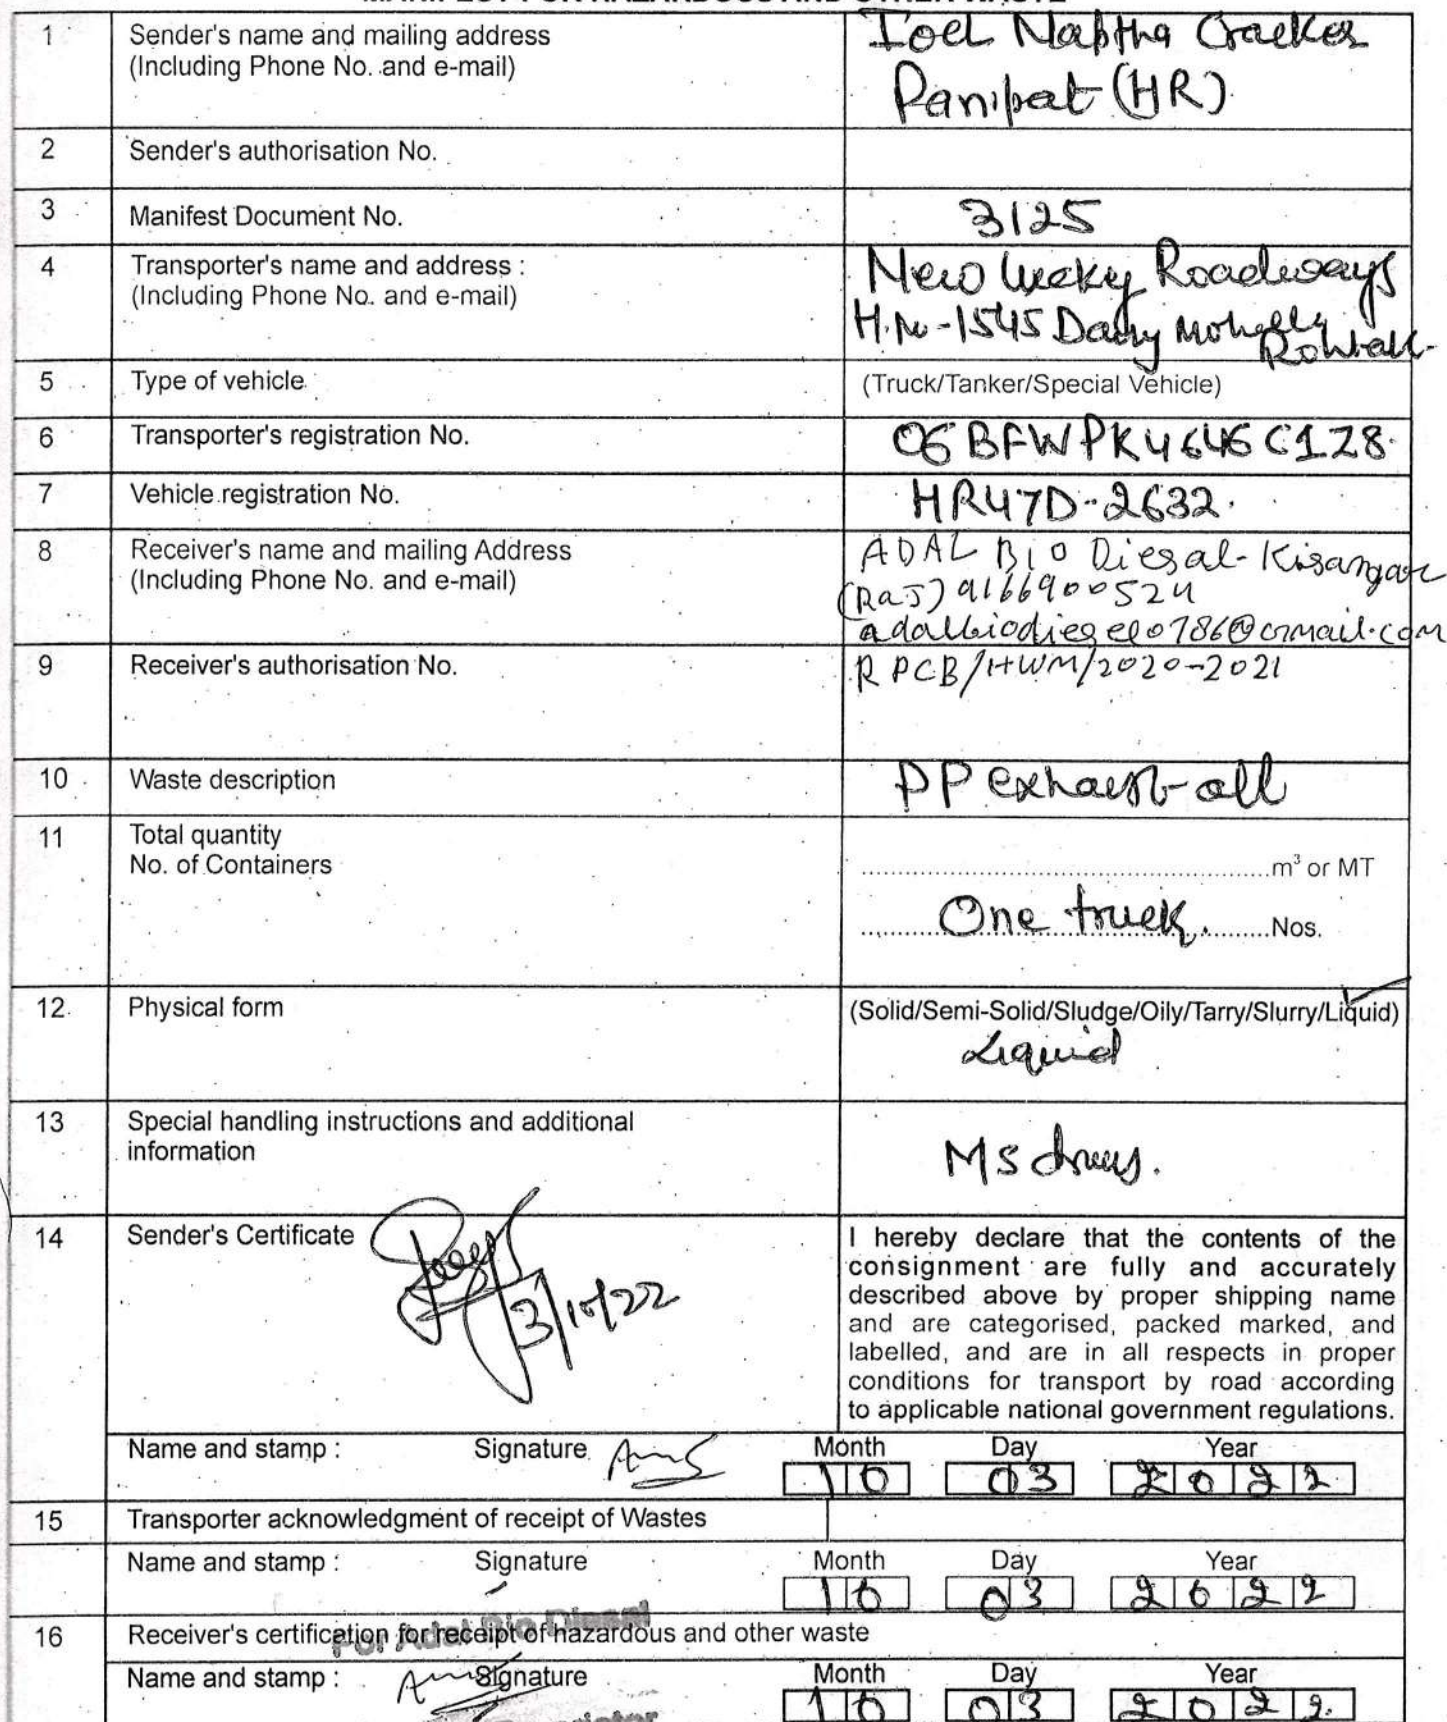 MANIFEST FOR HAZARDOUS AND OTHER WASTE
1 Sender's name and mailing address Ioel Naptha Cracker
(Including Phone No. and e-mail) Panipat (HR)
2 Sender's authorisation No.
3 Manifest Document No. 3125
4 Transporter's name and address : New lucky Roadways
(Including Phone No. and e-mail) H.No-1545 Dairy Mohalla
Rohtak.
5 Type of vehicle (Truck/Tanker/Special Vehicle)
6 Transporter's registration No. 06BFWPK4646C1Z8.
7 Vehicle registration No. HR47D-2632.
8 Receiver's name and mailing Address ADAL BIO Diesal-Kisangar
(Including Phone No. and e-mail) (RaJ) 9166900524
adalbiodiesel0786@gmail.com
9 Receiver's authorisation No. RPCB/HWM/2020-2021
10 Waste description PP exhaust-oil
11 Total quantity
No. of Containers m³ or MT
One truck. Nos.
12 Physical form (Solid/Semi-Solid/Sludge/Oily/Tarry/Slurry/Liquid)
Liquid
13 Special handling instructions and additional
information MS drums.
14 Sender's Certificate I hereby declare that the contents of the
consignment are fully and accurately
described above by proper shipping name
and are categorised, packed marked, and
labelled, and are in all respects in proper
conditions for transport by road according
to applicable national government regulations.
3/10/22
Name and stamp : Signature Month Day Year
10 03 2022
15 Transporter acknowledgment of receipt of Wastes
Name and stamp : Signature Month Day Year
10 03 2022
16 Receiver's certification for receipt of hazardous and other waste
For Adal Bio Diesel
Name and stamp : Signature Month Day Year
10 03 2022